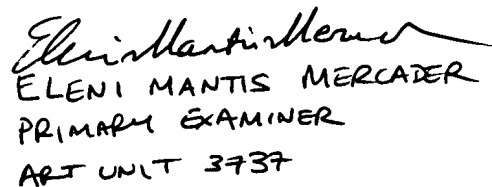 Eleni Mantis Mercader
ELENI MANTIS MERCADER
PRIMARY EXAMINER
ART UNIT 3737